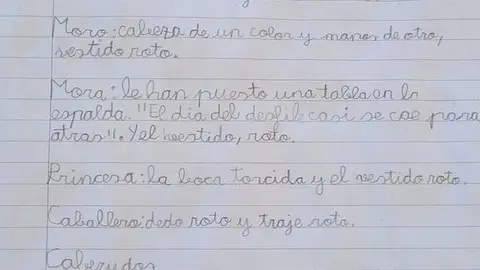 Moro: cabeza de un color y manos de otro,
vestido roto.
Mora: le han puesto una tabla en la
espalda. "El dia del desfile casi se cae para
atras". Y el vestido, roto.
Princesa: la boca torcida y el vestido roto.
Caballero: dedo roto y traje roto.